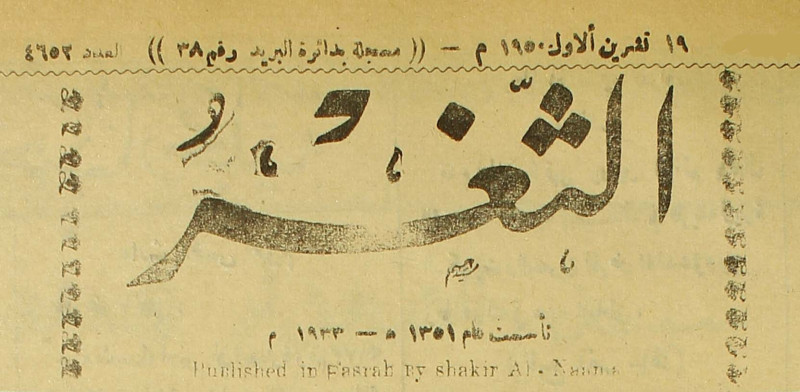 ١٩ تشرين ألاول ١٩٥٠ م — (( مسجلة بدائرة البريد رقم ٣٨ )) العدد ٤٦٥٢
الثَّغْرُ
تأسست عام ١٣٥١ ه — ١٩٣٣ م
Published in Basrah By shakir Al-Naama